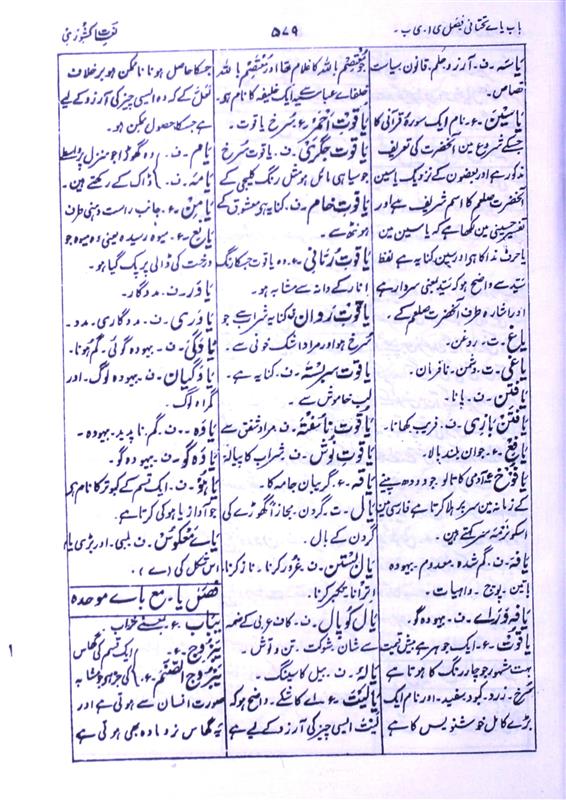 باب یاے تحتانی فصل ی ا۔ ی ب۔
۵۷۹
لغات کشوری
یاسَہ۔ ف۔ آرزو۔ حکم۔ قانون سیاست
قصاص۔
یاسین۔ ع۔ نام ایک سورۂ قرآنی کا
جسکے شروع مین آنحضرت کی تعریف
مذکور ہے اور بعضون کے نزدیک یاسین
آنحضرت صلعم کا اسم شریف ہے اور
تفسیر حسینی مین لکھا ہے کہ یاسین مین
یا حرف ندا کا ہوا اور سین کنایہ ہے لفظ
سید سے واضح ہو کہ سید یعنی سردار ہے
اور اشارہ طرف آنحضرت صلعم کے۔
یاغ۔ ت۔ روغن۔
یاغی۔ ت۔ دشمن۔ نافرمان۔
یافتن۔ ف۔ پانا۔
یافتن بازی۔ ف۔ فریب کھانا۔
یافع۔ ع۔ جوان بلند بالا۔
یافوخ۔ ع۔ آدمی کا تالو جو دودھ پینے
کے زمانہ مین سر پر ہلا کرتا ہے فارسی مین
اسکو نرمۂ سر کہتے ہین۔
یافہ۔ ف۔ گم شدہ۔ معدوم۔ بہودہ
باتین۔ پوچ۔ واہیات۔
یافہ درائے۔ ف۔ بہودہ گو۔
یاقوت۔ ع۔ ایک جوہر ہے بیش قیمت
بہت مشہور جو چار رنگ کا ہوتا ہے
سُرخ۔ زرد۔ کبود۔ سفید۔ اور نام ایک
بڑے کامل خوشنویس کا ہے
جو مستعصم باللہ کا غلام تھا اور مستعصم باللہ
خلفاے عباسیہ سے ایک خلیفہ کا نام ہو
یاقوت احمر۔ ع۔ سُرخ یاقوت۔
یاقوت جگری۔ ف۔ یاقوت سُرخ
جو سیاہی مائل ہو مثل رنگ کلیجی کے
یاقوت خام۔ ف۔ کنایہ ہو معشوق کے
ہونٹھ سے۔
یاقوت رُمّانی۔ ع۔ وہ یاقوت جسکا رنگ
انار کے دانہ سے مشابہ ہو۔
یاقوت روان۔ ف۔ کنایہ شراب سے جو
سُرخ ہوا ور مراد اشک خونی سے۔
یاقوت سربستہ۔ ف۔ کنایہ ہے۔
لب خاموش سے۔
یاقوت ناسفتہ۔ ف۔ مراد شفق سے
یاقوت نوش۔ ف۔ شراب کا پیالہ
یاقہ۔ ع۔ گریبان جامہ کا۔
یال۔ ت۔ گردن۔ مجازاً گھوڑے کی
گردن کے بال۔
یال بستن۔ ف۔ غرور کرنا۔ ناز کرنا۔
اترانا۔ تکبر کرنا۔
یال کوپال۔ ف۔ کاف عربی کے ضمہ
سے شان۔ شوکت۔ تن و توش۔
یالہ۔ ف۔ بیل کا سینگ۔
یالیت۔ ع۔ اے کاشکے۔ واضح ہو کہ
لیت ایسی چیز کی آرزو کے لیے ہے
جسکا حاصل ہونا ناممکن ہو برخلاف
لعل کے کہ وہ ایسی چیز کی آرزو کے لیے
ہے جسکا حصول ممکن ہو۔
یام۔ ف۔ وہ گھوڑا جو منزل پر واسطے
یامہ۔ ف۔ ڈاک کے رکھتے ہین۔
یامن۔ ع۔ جانب راست دہنی طرف
یانع۔ ع۔ میوہ رسیدہ یعنی وہ میوہ جو
درخت کی ڈالی پر پک گیا ہو۔
یاور۔ ف۔ مددگار۔
یاوری۔ ف۔ مددگاری۔ مدد۔
یاوگی۔ ف۔ بہودہ گوئی۔ گم ہونا۔
یاوگیان۔ ف۔ بہودہ لوگ۔ اور
گمراہ لوگ۔
یاوہ۔ ف۔ گم۔ ناپدید۔ بہودہ۔
یاوہ گو۔ ف۔ بہودہ گو۔
یاہو۔ ف۔ ایک قسم کے کبوتر کا نام ہو
جو آواز یاہو کی کرتا ہے۔
یاے معکوس۔ ف۔ لمبی اور بڑی یا
اس شکل کی (ے)۔
فصل یا۔ مع باے موحدہ
یباب۔ ع۔ یعنے خراب
یبروج۔ ع۔ ایک قسم کی گھاس
یبروج الصنم۔ ع۔ کی جڑ ہو جو مشابہ
صورت انسان سے ہوتی ہے اور
یہ گھاس نر و مادہ بھی ہوتی ہے